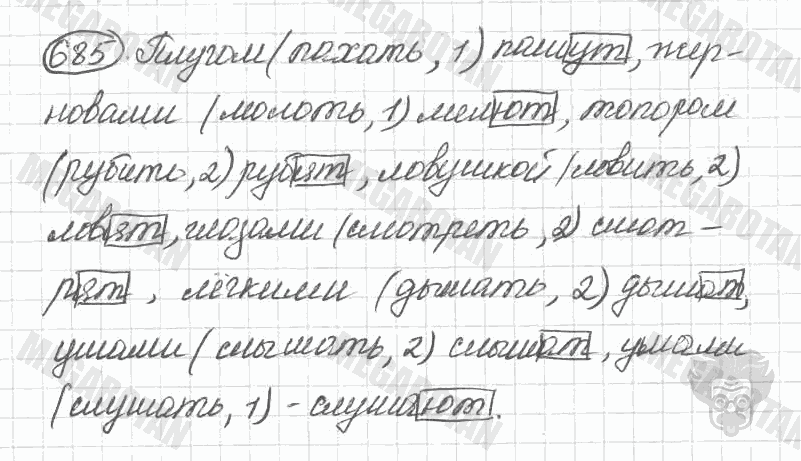 685. Плугом (пахать, 1) пашут, жер-
новами (молоть, 1) мелют, топором
(рубить, 2) рубят, ловушкой (ловить, 2)
ловят, глазами (смотреть, 2) смот-
рят, лёгкими (дышать, 2) дышат,
ушами (слышать, 2) слышат, ушами
(слушать, 1) - слушают.
MEGABOTAN